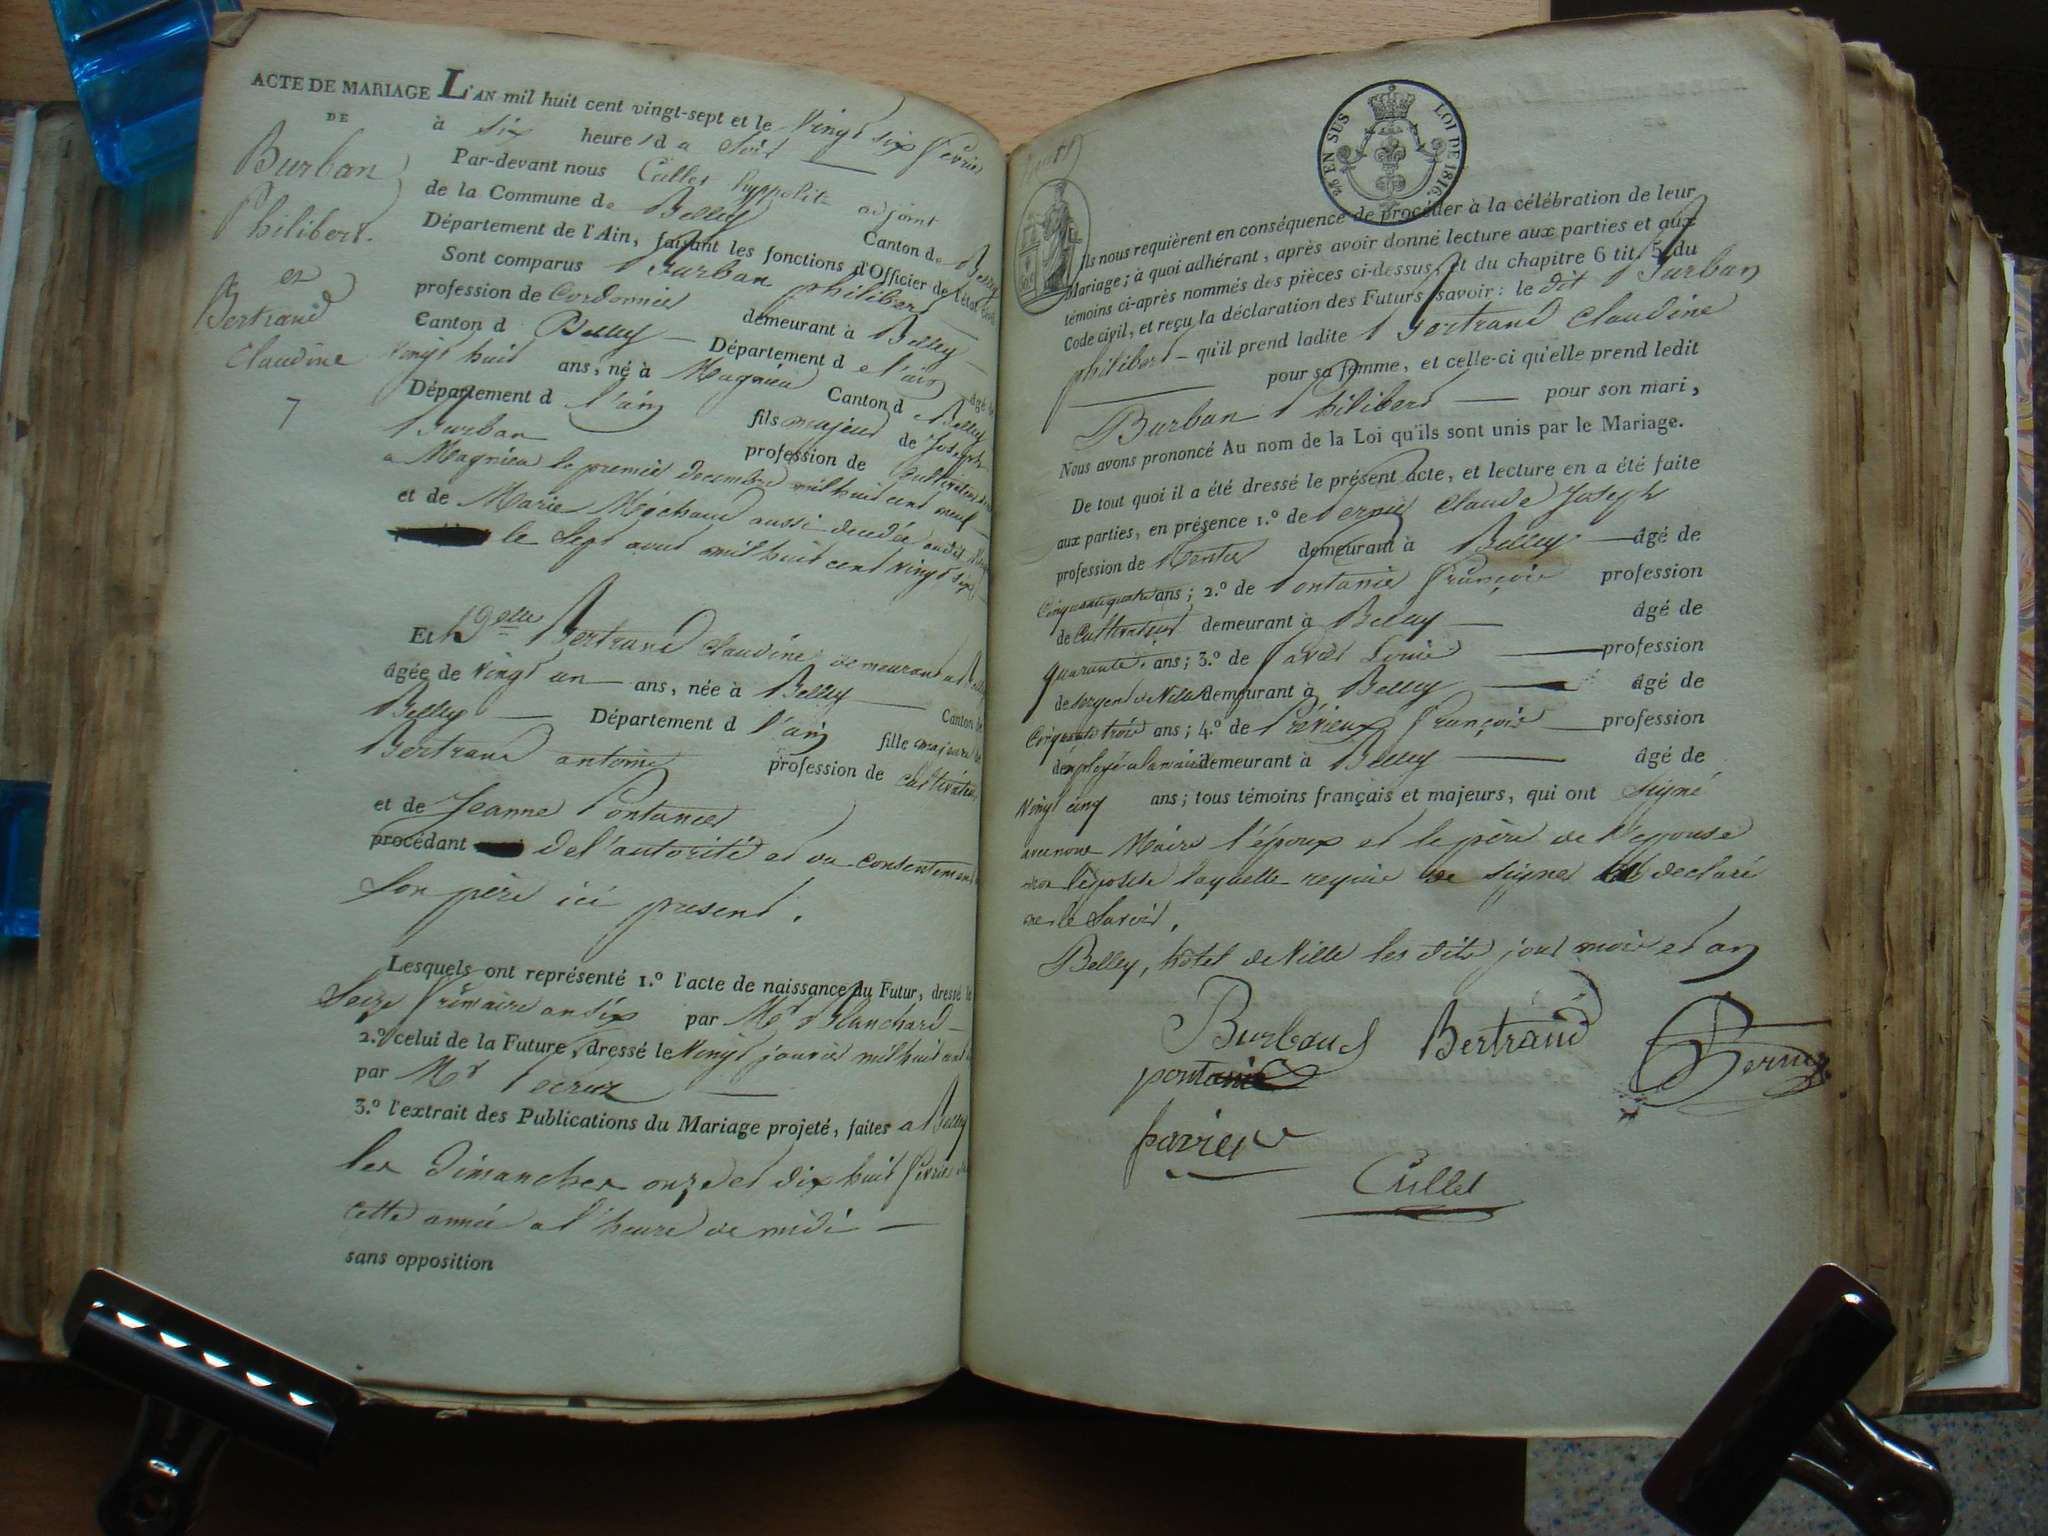 ACTE DE MARIAGE L'AN mil huit cent vingt-sept et le Vingt six fevrier
DE
à six heures du Soir
Burban
Philibert.
et
Bertrand
Claudine
7
Par-devant nous Cullet hyppolite adjoint
de la Commune de Belley Canton de Belley
Département de l'Ain, faisant les fonctions d'Officier de l'état civil
Sont comparus Burban philibert
profession de Cordonnier demeurant à Belley
Canton d Belley Département de l'ain âgé de
Vingt huit ans, né à Magnieu Canton d Belley
Département d l'ain fils majeur de Joseph
Burban profession de Cultivateur
a Magnieu le premier decembre mil huit cent neuf
et de Marie Mechaud aussi decedée audit
le Sept aout mil huit cent Vingt
Et Delle Bertrand Claudine demeurant a Belley
âgée de Vingt un ans, née à Belley Canton de
Belley Département d l'ain fille majeure de
Bertrand antoine profession de cultivateur
et de Jeanne Pontanier
procédant de l'autorité et du consentement
Son père ici present.
Lesquels ont représenté 1.º l'acte de naissance du Futur, dressé le
Seize frimaire an six par Mr Blanchard
2.º celui de la Future, dressé le Vingt janvier mil huit cent
par Mr
3.º l'extrait des Publications du Mariage projeté, faites a Belley
les Dimanches onze et dix huit fevrier de
cette année a l'heure de midi
sans opposition
25 EN SUS
LOI DE 1816.
Ils nous requièrent en conséquence de procéder à la célébration de leur
Mariage; à quoi adhérant, après avoir donné lecture aux parties et aux
témoins ci-après nommés des pièces ci-dessus, et du chapitre 6 tit. 5 du
Code civil, et reçu la déclaration des Futurs, savoir: le dit Burban
philibert qu'il prend ladite Bertrand Claudine
pour sa femme, et celle-ci qu'elle prend ledit
Burban Philibert pour son mari,
Nous avons prononcé Au nom de la Loi qu'ils sont unis par le Mariage.
De tout quoi il a été dressé le présent acte, et lecture en a été faite
aux parties, en présence 1.º de Pernet Claude Joseph
profession de Rentier demeurant à Belley âgé de
Cinquante quatre ans; 2.º de Pontanier françois profession
de Cultivateur demeurant à Belley âgé de
quarante ans; 3.º de Pavier Louis profession
de Sergent de Ville demeurant à Belley âgé de
Cinquante trois ans; 4.º de Prévieux françois profession
d'employé a la mairie demeurant à Belley âgé de
Vingt cinq ans; tous témoins français et majeurs, qui ont Signé
avec nous Maire l'époux et le père de l'epouse
non l'épouse laquelle requise de signer a declaré
ne le Savoir.
Belley, hôtel de Ville les dits jour mois et an
Burban Bertrand
pontanier
pavier
Cullet